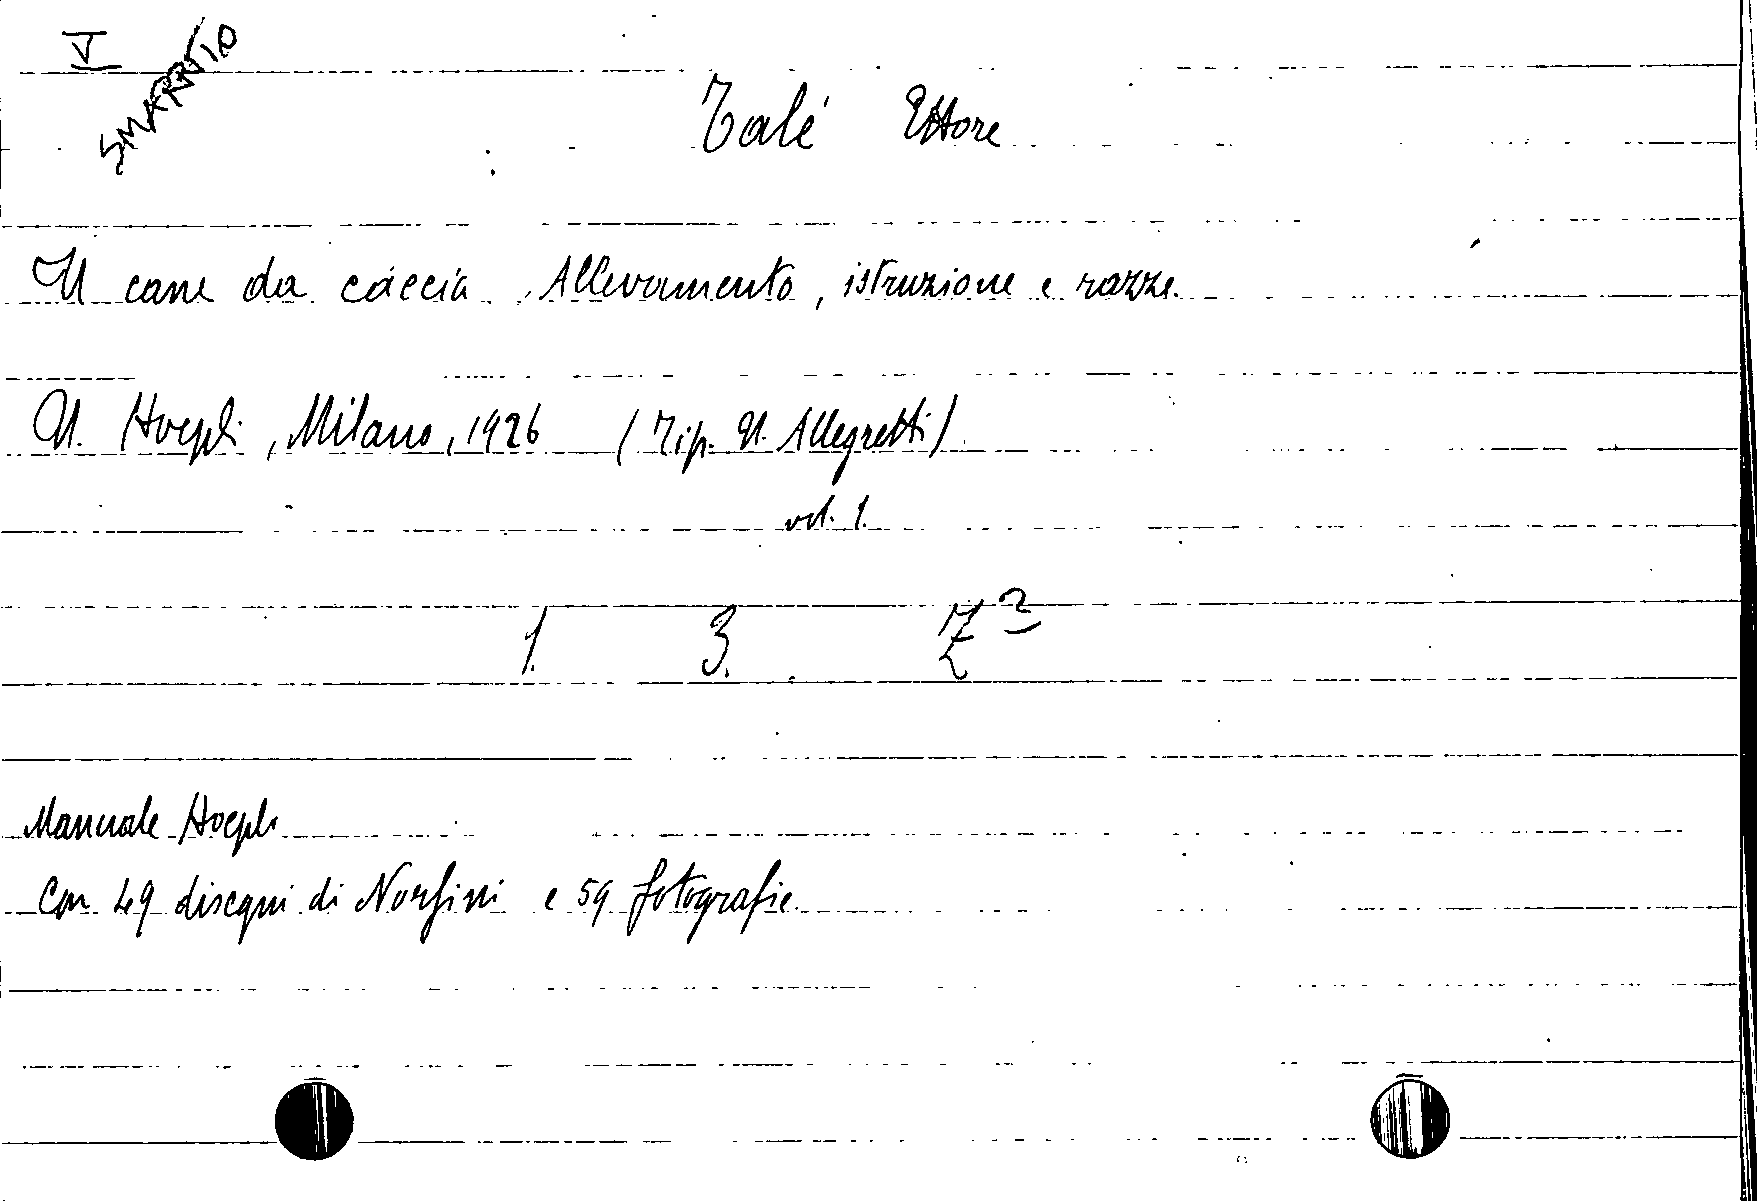 V
SMARRITO
Talé Ettore
Il cane da caccia. Allevamento, istruzione e razze.
U. Hoepli, Milano, 1926 (Tip. U. Allegretti)
vol. 1.
1. 3. Z 2
Manuale Hoepli
Con 49 disegni di Norfini e 59 fotografie.